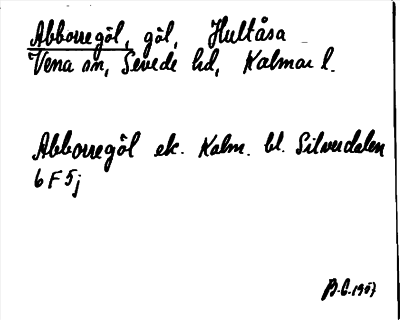 Abborregöl, göl, Hultåsa
Vena sn, Sevede hd, Kalmar l.
Abborregöl ek. Kalm. bl. Silverdalen
6 F 5j